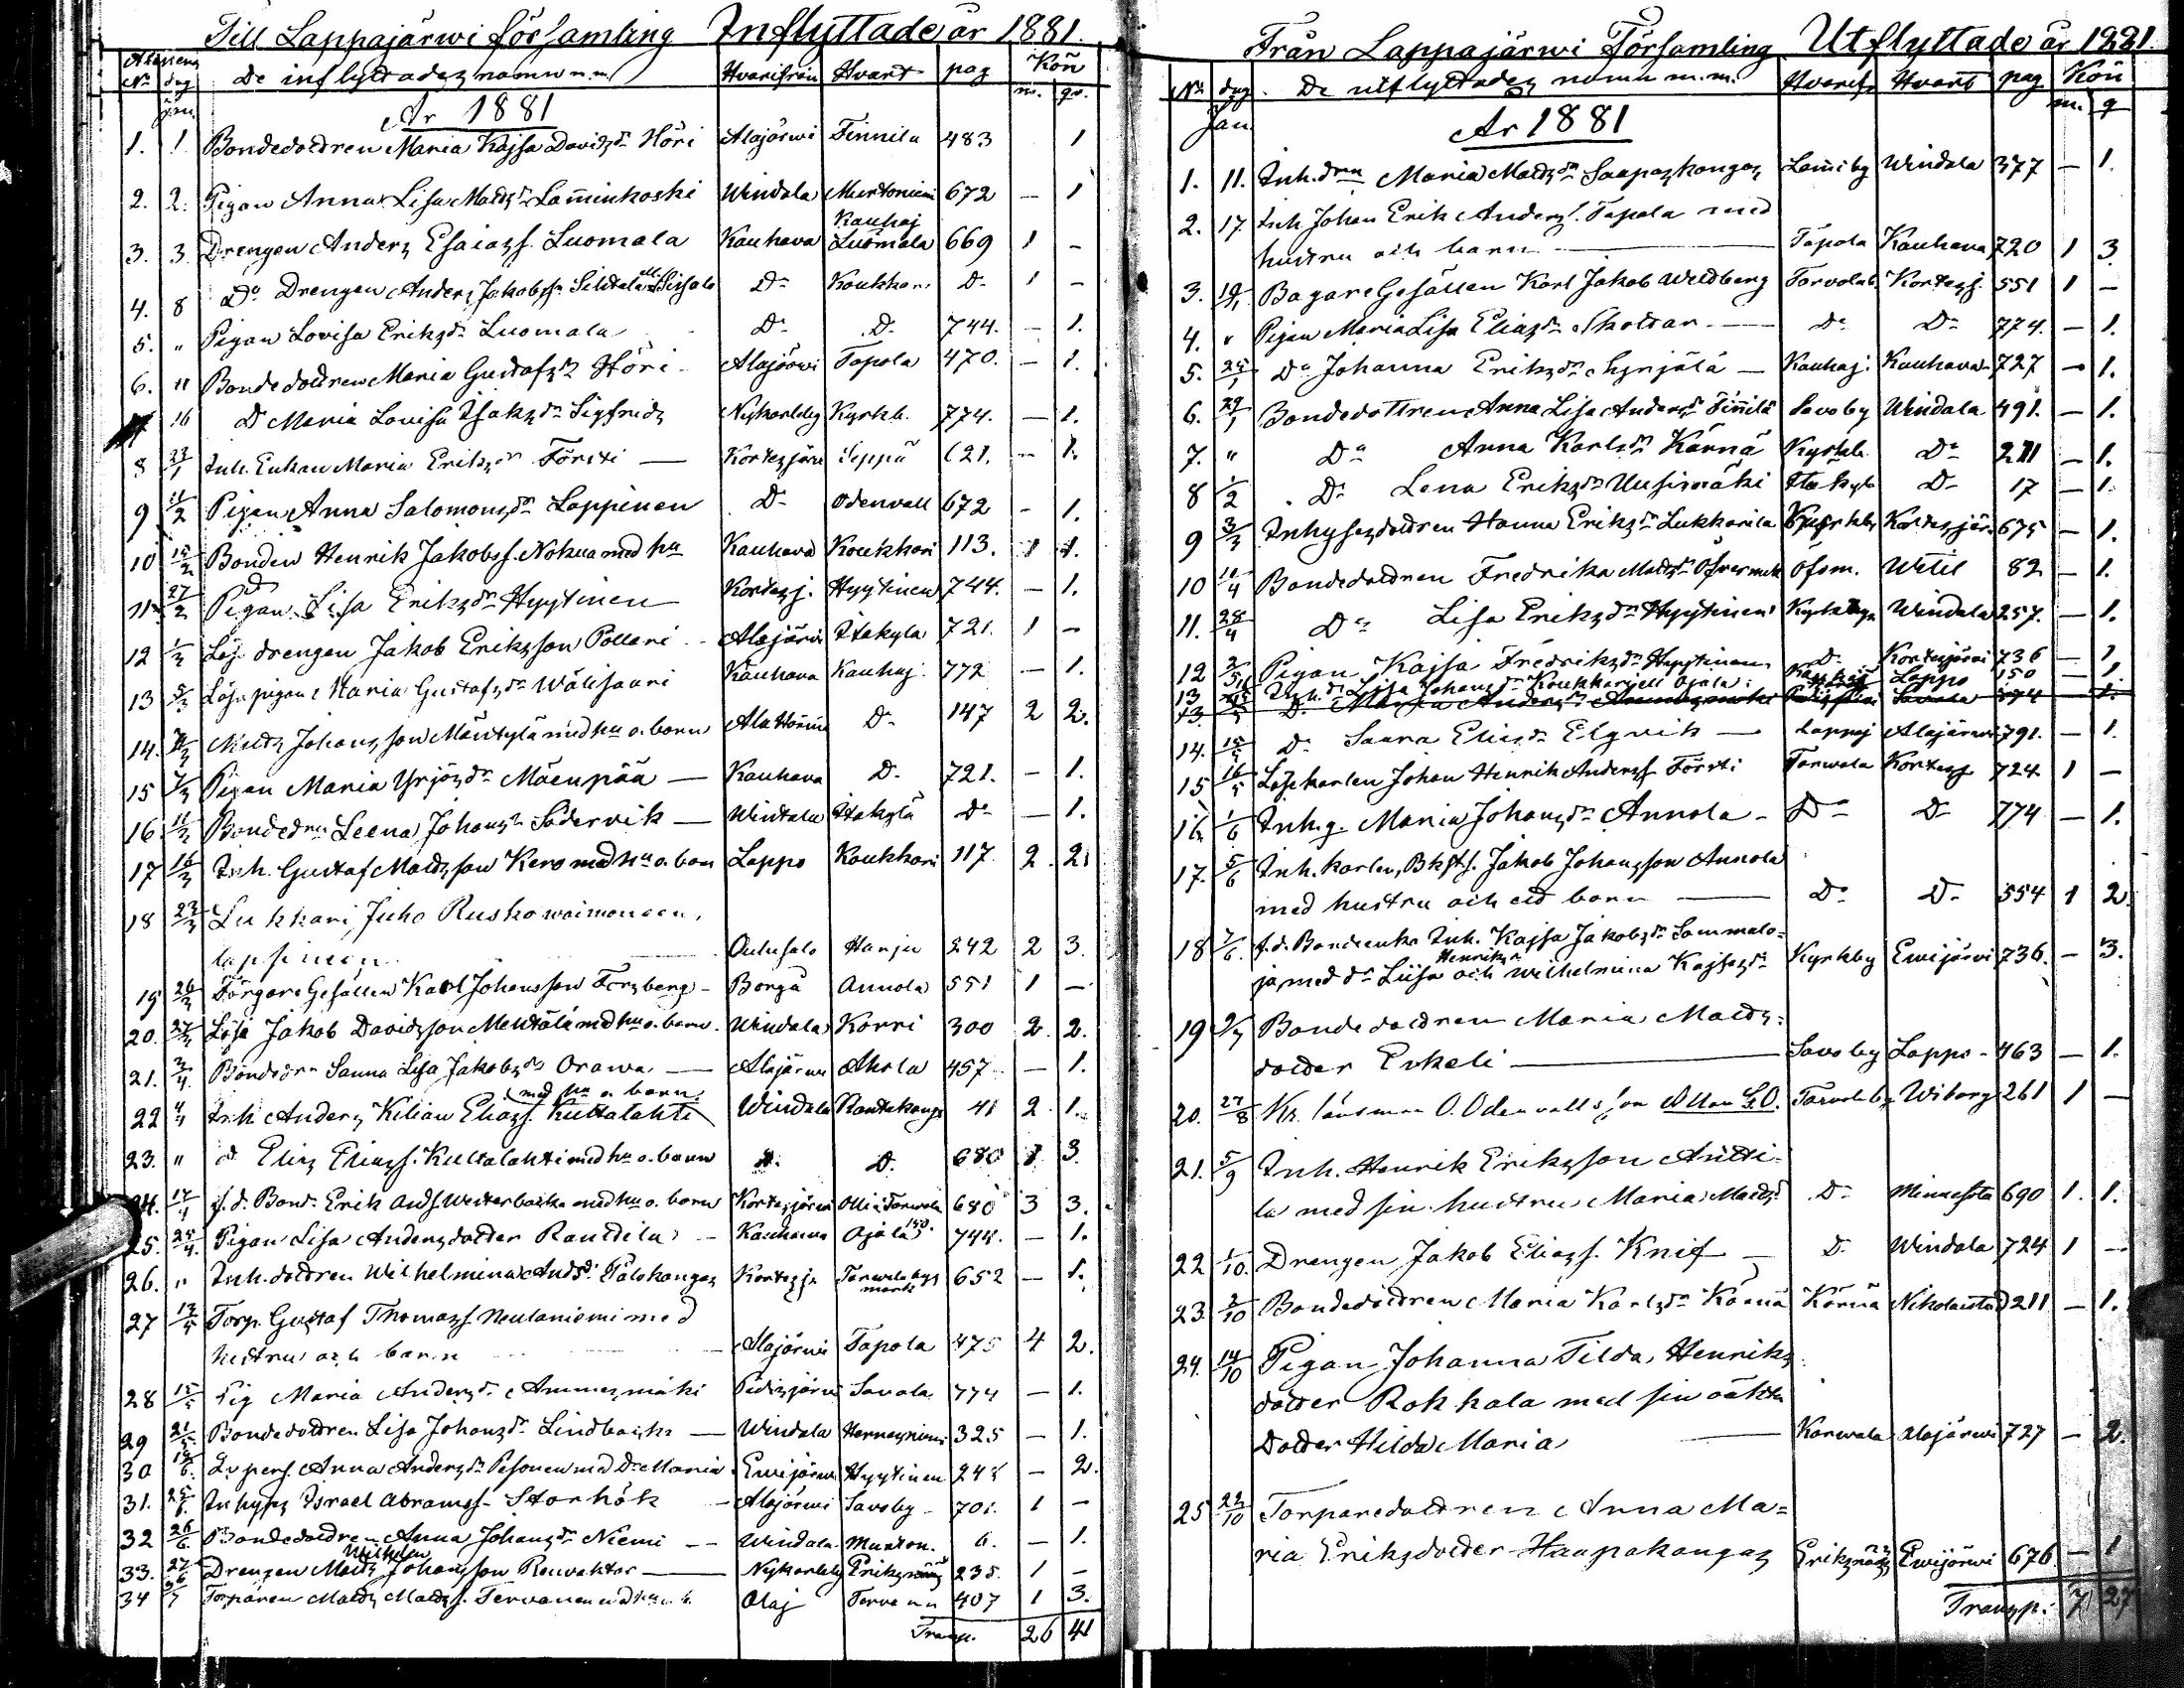 Till Lappajärwi församling Inflyttade år 1881.
No dag De inflyttades namn m.m. Hvarifrån Hvart pag Kön
m. qv.
Jan. År 1881
1. 1 Bondedottren Maria Kajsa Davidsdr Höri Alajärwi Finnilä 483 1
2. 2. Pigan Anna Lisa Mattsdr Lamminkoski Windala Murtoniemi 672 – 1
Kauhaj
3. 3 Drengen Anders Esaiass. Luomala Kauhava Luomala 669 1 –
4. 8 Do Drengen Anders Jakobss. Do Koukkari Do 1 –
5. " Pigan Lovisa Eriksdr Luomala Do Do 744. – 1.
6. " Bondedottren Maria Gustafsdr Höri Alajärwi Tapola 470. – 1.
16 Do Maria Lovisa Isaksdr Sigfrids Nykarleby Kyrkb. 774. – 1.
8 23/1 Inh. Enkan Maria Eriksdr Försti — Kortesjärvi Seppä 621. – 1.
9 11/2 Pigan Anna Salomonsdr Lappinen Do Odenvall 672 – 1.
10 15/2 Bonden Henrik Jakobss. Nokua med hu Kauhava Koukkari 113. 1 1.
11 27/2 Pigan Lisa Eriksdr Hyytinen Kortesj. Hyytinen 744. – 1.
12 1/3 Lös drengen Jakob Eriksson Pollari Alajärvi Itäkylä 721. 1 –
13 5/3 Lösa pigan Maria Gustafsdr Wälisaari Kauhava Kauhaj. 772 – 1.
14. Matts Johansson Mäntylä med hu o. barn Alahärmä Do 147 2 2.
15 7/3 Pigan Maria Yrjösdr Mäenpää — Kauhava Do 721. – 1.
16 11/3 Bondedrn Leena Johansdr Södervik — Windala Itäkylä Do – 1.
17 16/3 Inh. Gustaf Mattsson Kero med hu o. barn Lappo Koukkari 117 2 2.
18 23/3 Lukkari Juho Rusko waimoneen,
lapsineen Oulusalo Harju 242 2 3.
19 26/3 Färgare Gesällen Karl Johansson Forsberg – Borgå Annola 551 1 –
20. 27/3 Lösa Jakob Davidsson Mentälä med hu o. barn. Windala Korri 300 2. 2.
21. 2/4 Bondedrn Sanna Lisa Jakobsdr Orawa — Alajärwi Ahola 457 – 1.
med hu o. barn
22 4/4 Inh Anders Kilian Eliass. Kultalahti Windala Rantakangas 41 2 1.
23. " d. Elias Eliass. Kultalahti med hu o. barn Do Do 680 1 3.
24. 17/4 f.d. Bond. Erik Ands. Westerbacka med hu o. barn Kortesjärvi Olli Tarwola 680 3 3.
25. 25/4 Pigan Lisa Andersdotter Rantdila Kauhawa Ojala 150. 744. – 1.
26. " Inh. dottren Wilhelmina Andsdr Palokangas Kortesj. Tarwolaby 652 – 1.
mark
27 12/5 Torp. Gustaf Thomass. Neulaniemi med
hustru och barn Alajärwi Tapola 475 4 2.
28 15/5 Pig Maria Andersdr Ammesmäki Pedersjärvi Savola 774 – 1.
29 21/5 Bondedottren Lisa Johansdr Lindbacka — Windala Herneniemi 325 – 1.
30 12/6 Lvpers. Anna Andersdr Pesonen med Dr Maria Ewijärwi Hyytinen 248 – 2.
31. 25/6 Inhyss Israel Abramss. Storhök Alajärwi Savoby 701. 1 –
32 26/6 Bondedottren Anna Johansdr Niemi — Windala Murton. 6. – 1.
Wilhelm
33. 27/6 Drengen Matts Johansson Renvaktar — Nykarleby Eriksnäs 235. 1 –
34 Torparen Matts Mattss. Tervanen med hu o. b. Alaj Tervanen 407 1 3.
Transp. 26 41
Från Lappajärwi Församling Utflyttade år 1881.
No dag. De utflyttades namn m.m. Hvarifr. Hvart pag Kön
m. q
Jan. År 1881
1. 11. Inh. drn Maria Mattsdr Saapaskangas Lamiby Windala 377 – 1.
2. 17. Inh Johan Erik Anderss. Tapola med
hustru och barn — Tapola Kauhava 720 1 3.
3. 19/1 Bagare Gesällen Karl Jakob Weldberg Tarvolab. Kortesj. 551 1 –
4. " Pigan Maria Lisa Eliasdr Skoltar — Do Do 774. – 1.
5. 25/1 Do Johanna Eriksdr Syrjälä — Kauhaj. Kauhava 727 – 1.
6. 29/1 Bondedottren Anna Lisa Andersdr Finnilä Savoby Windala 491. – 1.
7. " Do Anna Karlsdr Kärnä Kyrkb. Do 211 – 1.
8 1/2 Do Lena Eriksdr Uusimäki Itäkylä Do 17 – 1.
9 3/3 Inhysesdottren Hanna Eriksdr Lukkarila Kyrkby Kortesjär. 675 – 1.
10 11/4 Bondedottren Fredrika Mattsdr Öfvermark Öfvm. Wetil 82 – 1.
11. 28/4 Do Lisa Eriksdr Hyytinen Kyrkbyn Windala 257. – 1.
12 2/5 Pigan Kajsa Fredriksdr Hyytinen Do Kortesjärvi 736 – 1
13 Inh. dr Lisa Johansdr Koukkari ell Ojala Kauhaj Lappo 150 – 1.
13. Do Maria Andersdr Ammesmäki Savola 774 1.
14. 15/5 Do Sanna Eliasdr Elgvik — Lappaj Alajärwi 791. – 1.
15 16/5 Löskarlen Johan Henrik Anderss. Försti Tarwola Kortesj 724 1 –
16 1/6 Inh. q. Maria Johansdr Annola – Do Do 774 – 1.
17. 5/6 Inh. karlen, Bkfts. Jakob Johansson Annola
med hustru och ett barn — Do Do 554 1 2.
18 7/6. f.d. Bondenka Inh. Kajsa Jakobsdr Sammalo-
Henriksdr
ja med dr Liisa och Wilhelmina Kajsasdr Kyrkby Ewijärvi 736. – 3.
19 9/7 Bondedottren Maria Matts-
dotter Erkeli — Savoby Lappo – 463 – 1.
20. 27/8 Kr. länsman O. Odenvalls son Allan G.O. Tarvolaby Wiborg 261 1 –
21. 5/9 Inh. Henrik Eriksson Antti-
la med sin hustru Maria Mattsd Do Minnesota 690 1. 1.
22 1/10. Drengen Jakob Eliass. Knif — Do Windala 724 1 –
23. 2/10 Bondedottren Maria Karlsdr Kärnä Kärnä Nikolaistad 211 – 1.
24. 14/10 Pigan Johanna Tilda Henriks
dotter Rokkala med sin oäkta
Dotter Hilda Maria — Karwala Alajärwi 727 – 2.
25 22/10 Torparedottren Anna Ma-
ria Eriksdotter Haapakangas Eriksnäs Ewijärwi 676 – 1
Transp. 7 27